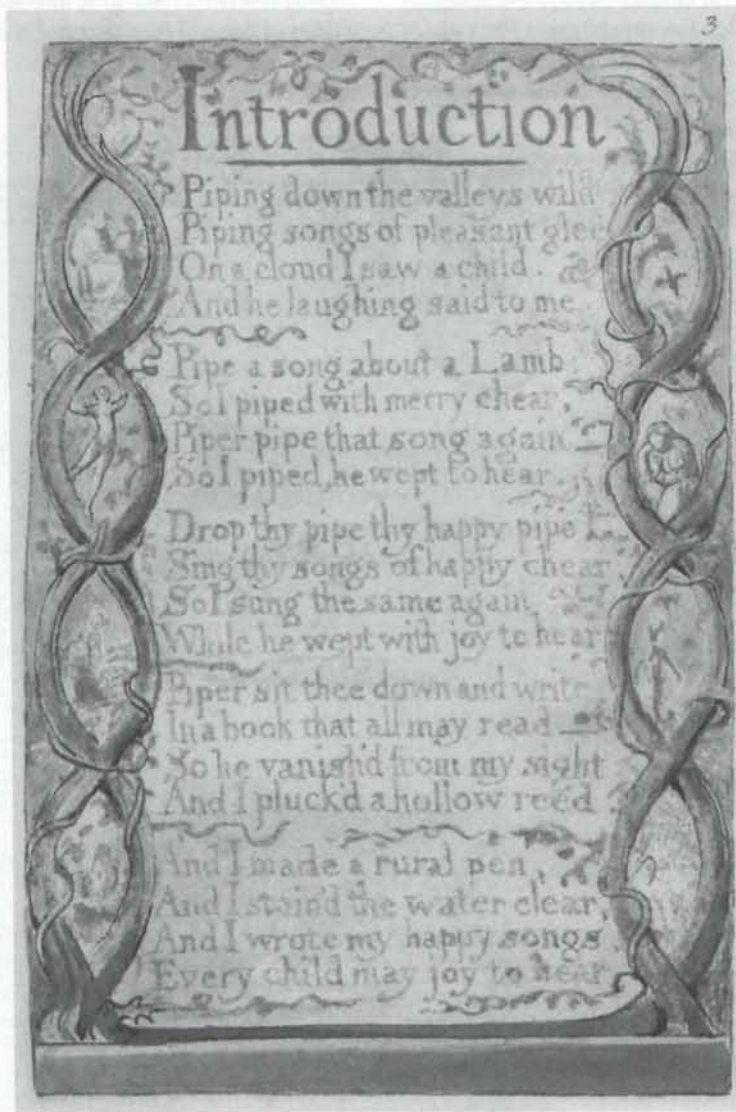 3
Introduction
Piping down the valleys wild
Piping songs of pleasant glee
On a cloud I saw a child.
And he laughing said to me.
Pipe a song about a Lamb:
So I piped with merry chear,
Piper pipe that song again—
So I piped, he wept to hear.
Drop thy pipe thy happy pipe
Sing thy songs of happy chear
So I sung the same again
While he wept with joy to hear
Piper sit thee down and write
In a book that all may read—
So he vanish'd from my sight
And I pluck'd a hollow reed
And I made a rural pen,
And I stain'd the water clear,
And I wrote my happy songs
Every child may joy to hear